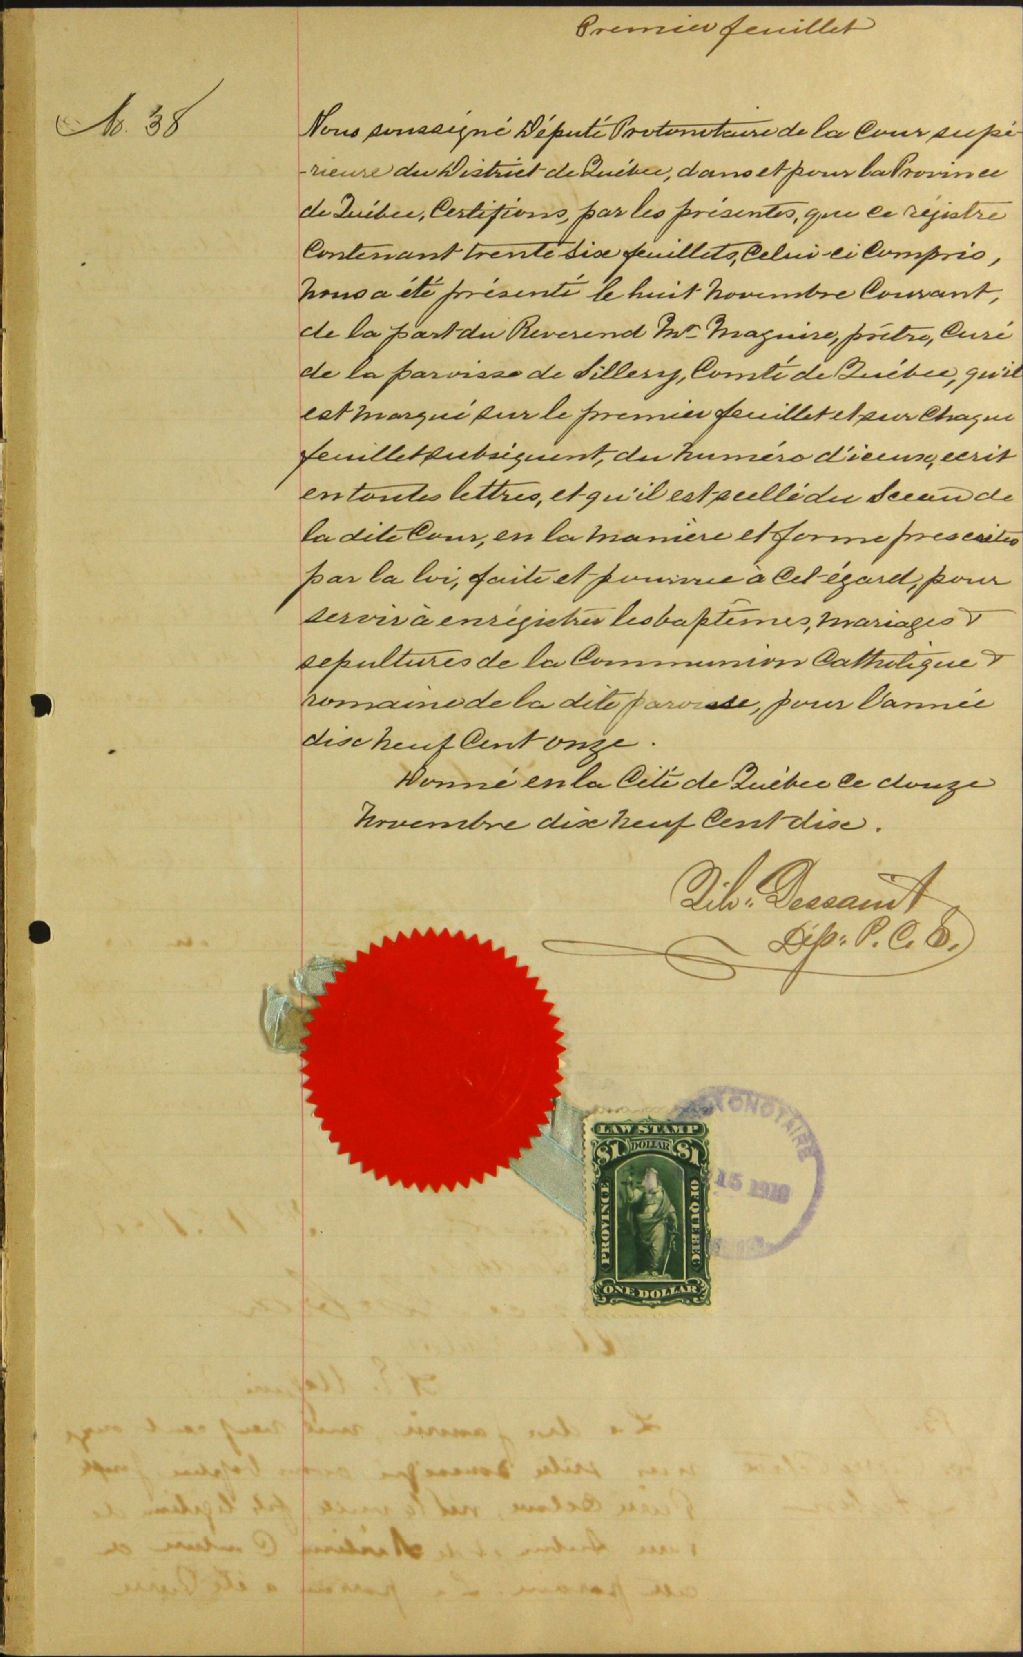 Premier feuillet
No. 38
Nous soussigné Député Protonotaire de la Cour supé-
-rieure du District de Québec, dans et pour la Province
de Québec, Certifions, par les présentes, que ce régistre
Contenant trente six feuillets, Celui-ci Compris,
nous a été présenté le huit Novembre Courant,
de la part du Reverend Mr Maguire, prêtre, Curé
de la paroisse de Sillery, Comté de Québec, qu'il
est marqué sur le premier feuillet et sur Chaque
feuillet subséquent, du numéro d'iceux, écrit
en toutes lettres, et qu'il est scellé du Sceau de
la dite Cour, en la manière et forme prescrites
par la loi, faite et pourvue à Cet égard, pour
servir à enrégistrer les baptêmes, mariages &
sepultures de la Communion Catholique &
romaine de la dite paroisse, pour l'année
dix neuf Cent onze.
Donné en la Cité de Québec ce douze
Novembre dix neuf Cent dix.
Dessaint
Dép: P. C. S.
LAW STAMP
$1 DOLLAR $1
PROVINCE OF QUEBEC
ONE DOLLAR
15 1910